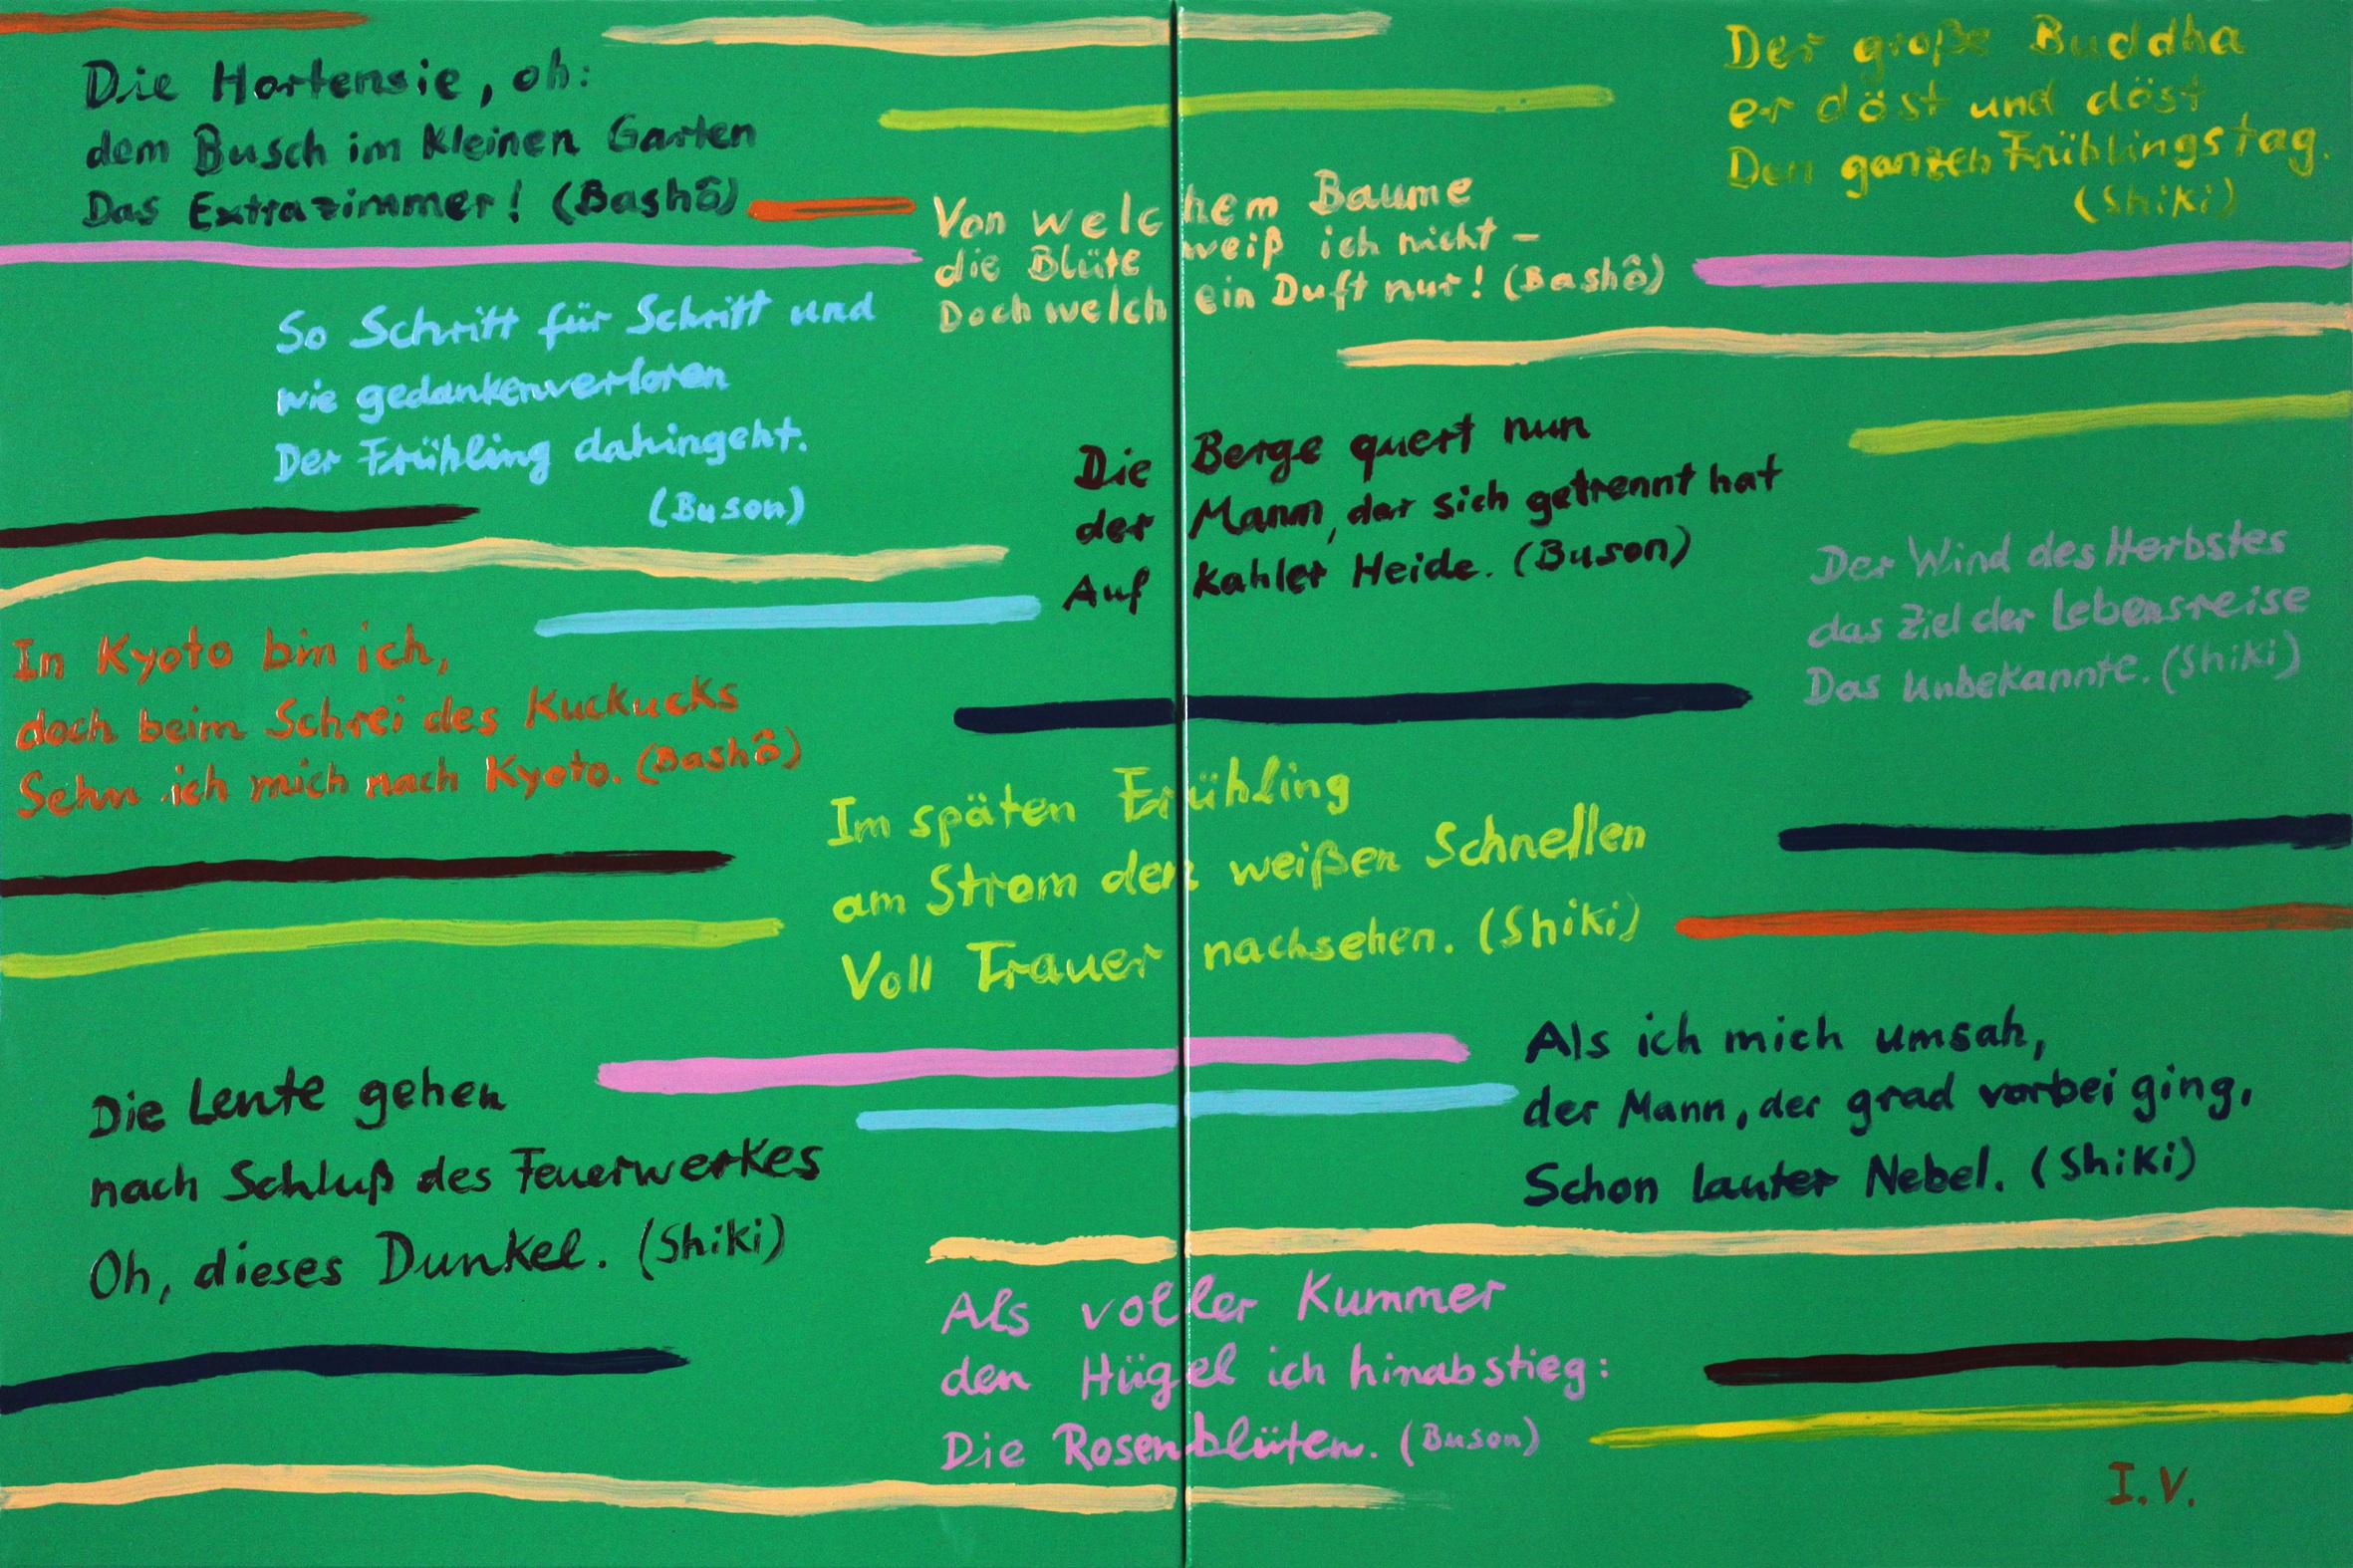 Die Hortensie, oh:
dem Busch im kleinen Garten
Das Extrazimmer! (Bashô)
Von welchem Baume
die Blüte weiß ich nicht –
Doch welch ein Duft nur! (Bashô)
Der große Buddha
er döst und döst
Den ganzen Frühlingstag.
(Shiki)
So Schritt für Schritt und
wie gedankenverloren
Der Frühling dahingeht.
(Buson)
Die Berge quert nun
der Mann, der sich getrennt hat
Auf kahler Heide. (Buson)
Der Wind des Herbstes
das Ziel der Lebensreise
Das Unbekannte. (Shiki)
In Kyoto bin ich,
doch beim Schrei des Kuckucks
Sehn ich mich nach Kyoto. (Bashô)
Im späten Frühling
am Strom den weißen Schnellen
Voll Trauer nachsehen. (Shiki)
Die Leute gehen
nach Schluß des Feuerwerkes
Oh, dieses Dunkel. (Shiki)
Als ich mich umsah,
der Mann, der grad vorbei ging,
Schon lauter Nebel. (Shiki)
Als voller Kummer
den Hügel ich hinabstieg:
Die Rosenblüten. (Buson)
I.V.